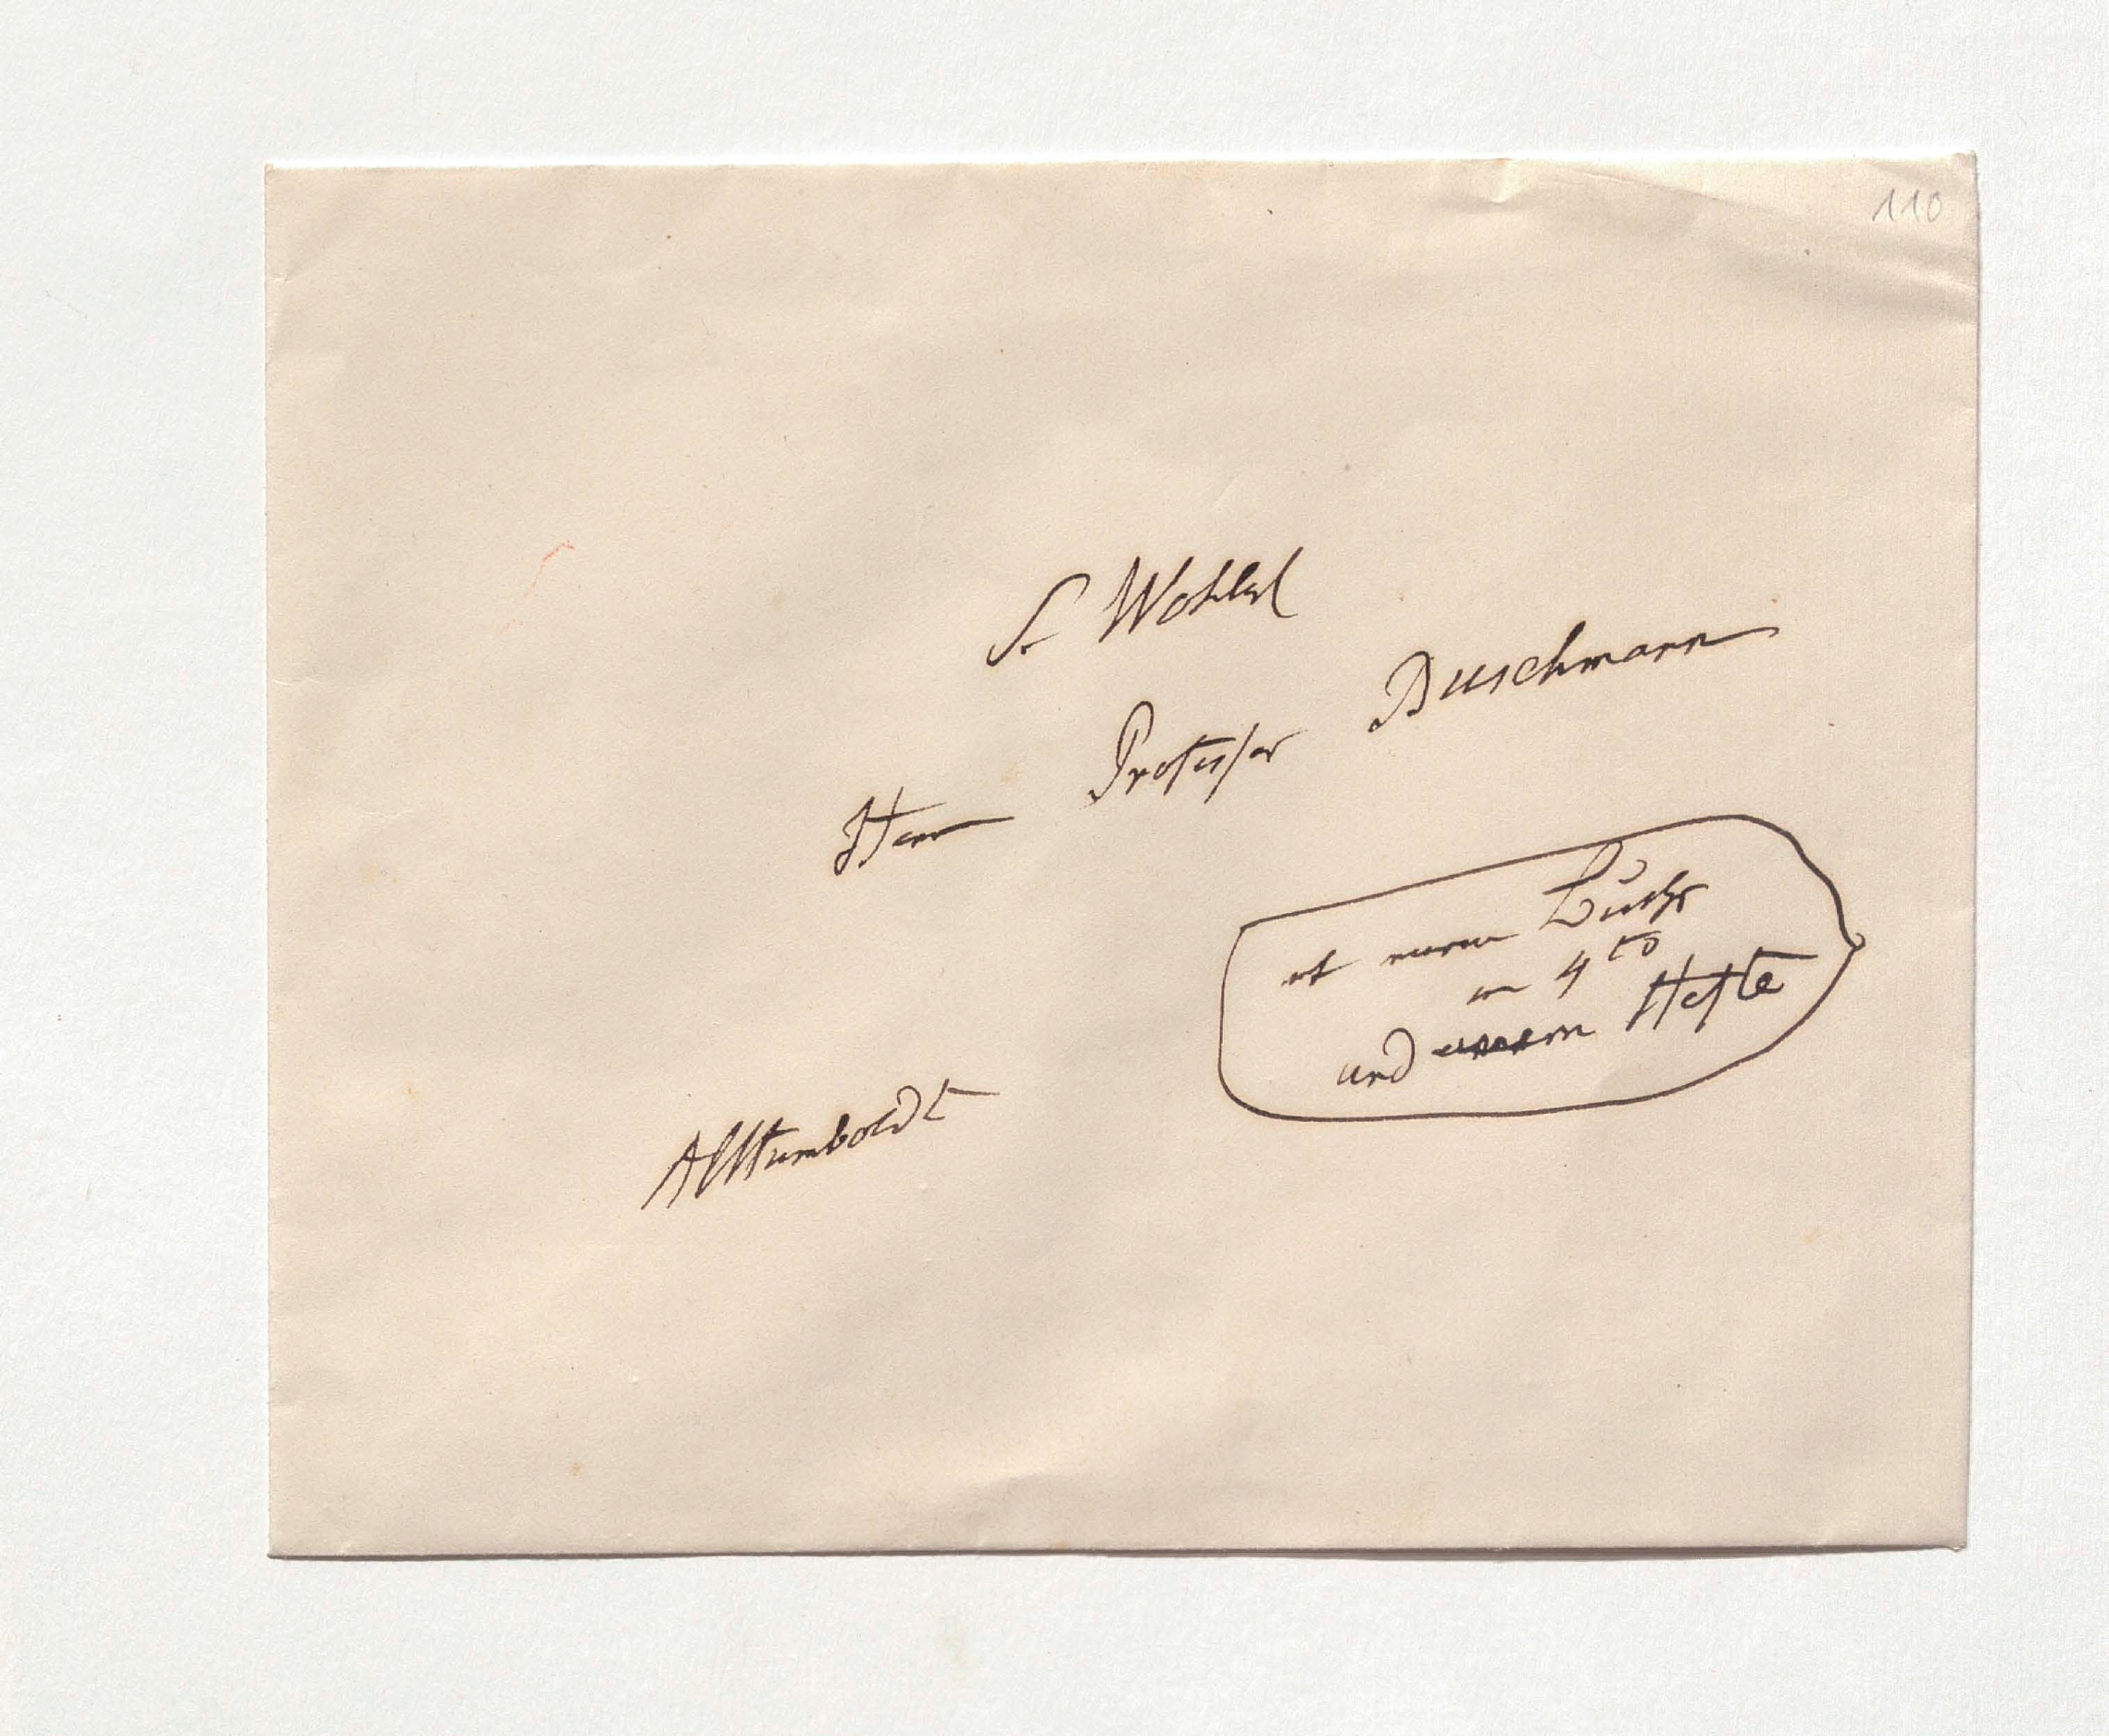 110
S. Wohlgb
Herrn Professor Buschmann
mit einem Buche
in 4to
und einem Hefte
AlHumboldt